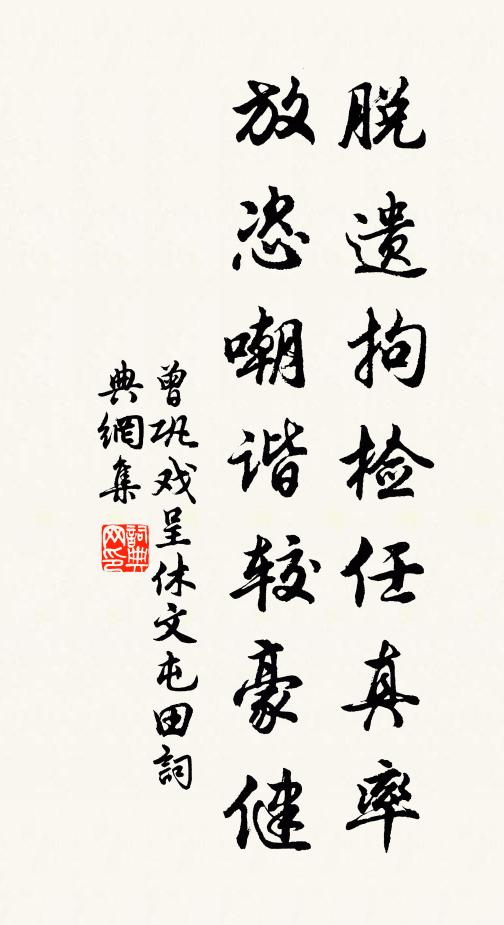 脱遗拘检任真率
放恣嘲谐较豪健
曾巩戏呈休文屯田詞
典網集
詞典
网印